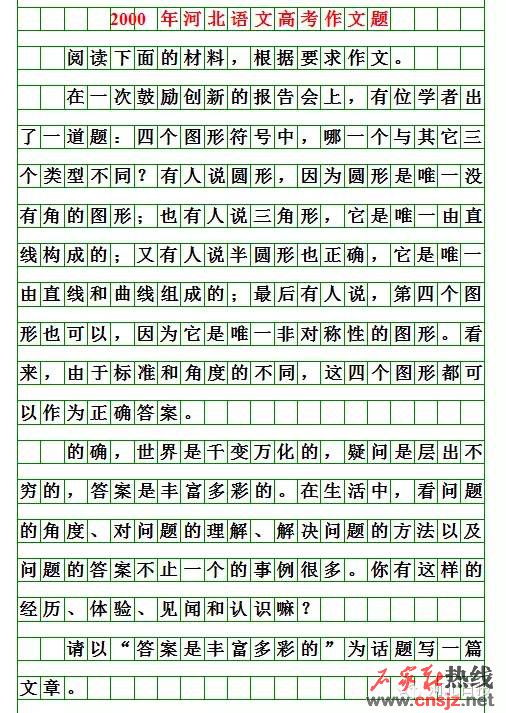 2000 年河北语文高考作文题
阅读下面的材料，根据要求作文。
在一次鼓励创新的报告会上，有位学者出
了一道题：四个图形符号中，哪一个与其它三
个类型不同？有人说圆形，因为圆形是唯一没
有角的图形；也有人说三角形，它是唯一由直
线构成的；又有人说半圆形也正确，它是唯一
由直线和曲线组成的；最后有人说，第四个图
形也可以，因为它是唯一非对称性的图形。看
来，由于标准和角度的不同，这四个图形都可
以作为正确答案。
的确，世界是千变万化的，疑问是层出不
穷的，答案是丰富多彩的。在生活中，看问题
的角度、对问题的理解、解决问题的方法以及
问题的答案不止一个的事例很多。你有这样的
经历、体验、见闻和认识嘛？
请以“答案是丰富多彩的”为话题写一篇
文章。
石家庄热线
www.cnsjz.net